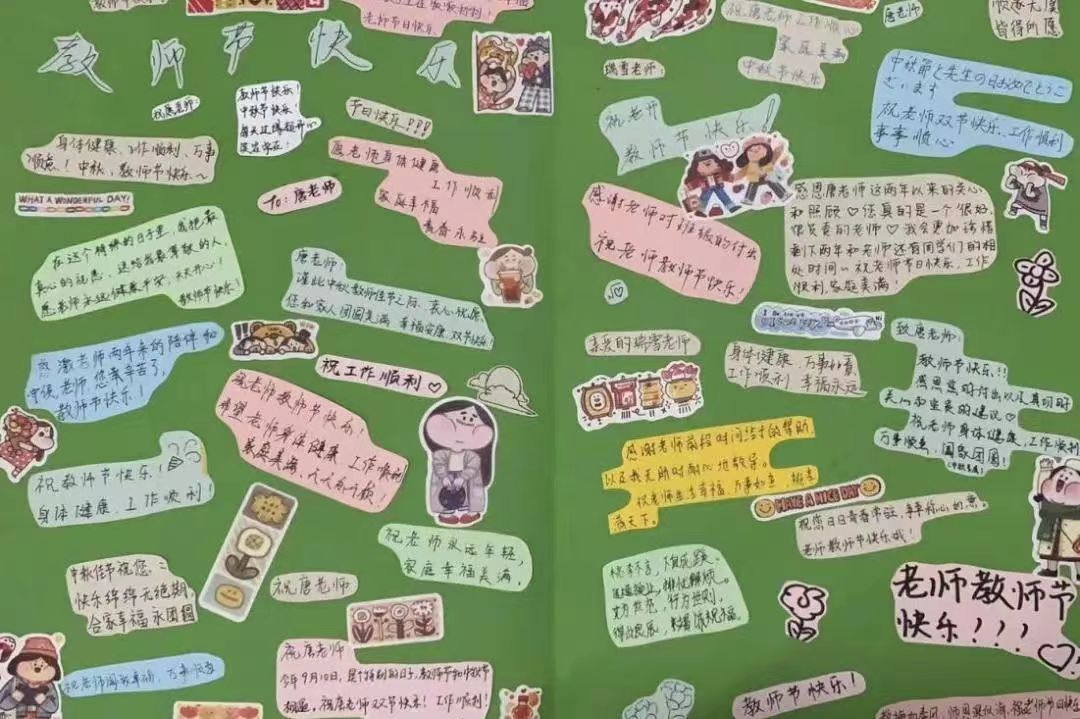 教师节快乐
祝唐老师:
教师节快乐!
中秋节快乐!
节日快乐!!!
身体健康、工作顺利、万事
顺意!中秋、教师节快乐~
WHAT A WONDERFUL DAY!
To:唐老师
唐老师身体健康
工作顺利
家庭幸福
青春永驻
在这个特殊的日子里,我把最
真心的祝愿,送给我最尊敬的人,
愿老师永远健康平安,天天开心!
教师节快乐!
唐老师:
谨此中秋教师佳节之际,衷心祝愿
您和家人团圆美满 幸福安康,双节快乐!
感激老师两年来的陪伴和
守候,老师,您辛苦了,
教师节快乐!
祝工作顺利♡
唐老师教师节快乐!
希望老师身体健康、工作顺利
家庭美满、
祝教师节快乐!
身体健康、工作顺利!
祝老师永远年轻,
家庭幸福美满。
中秋佳节祝您:
快乐绵绵无绝期,
合家幸福永团圆
祝唐老师
祝唐老师
今年9月10日,是个特别的日子,教师节和中秋节
相遇,祝唐老师双节快乐!工作顺利!
祝老师阖家幸福,万事顺意
老师节日快乐!
祝唐老师工作顺心
家庭美满
中秋节快乐
唐老师
顺遂无虞
皆得所愿
瑞雪老师:
祝老师
教师节快乐!
中秋節と先生の日おめでとうご
ざいます
祝老师双节快乐、工作顺利
事事顺心
感谢老师对班级的付出
祝老师教师节快乐!
感恩唐老师这两年以来的关心
和照顾♡您真的是一个很好、
很负责的老师♡我会更加珍惜
剩下两年和老师还有同学们的相
处时间~祝老师节日快乐,工作
顺利,家庭美满!
亲爱的瑞雪老师
身体健康、万事如意、
工作顺利 幸福永远
致唐老师:
教师节快乐!!
感恩您的付出以及真切的
关心和宝贵的建议♡
祝老师身体健康,工作顺利
万事顺意,阖家团圆!
感谢老师前段时间给予的帮助
以及我无助时耐心地教导。
祝老师生活幸福,万事如意,桃李
满天下。
HAVE A NICE DAY
祝您日日青春常驻,事事称心如意。
老师教师节快乐哦!
桃李不言,下自成蹊,
老师教师节
快乐!!!
教师节快乐!